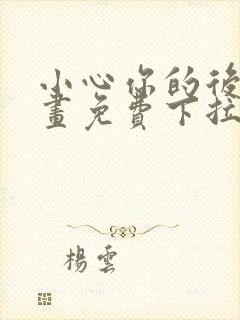 小心你的後
畫免費下拉
楊雲